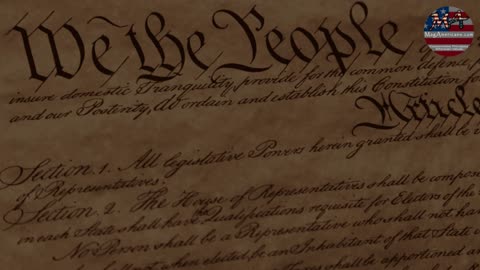 We the People
insure domestic Tranquility, provide for the common defence,
and our Posterity, do ordain and establish this Constitution for
Article
Section 1. All legislative Powers herein granted shall be
of Representatives.
Section 2. The House of Representatives shall be
in each State shall have the Qualifications requisite for Electors of the
No Person shall be a Representative who shall not
when elected, be an Inhabitant of that State
shall be apportioned
MagAmericans.com